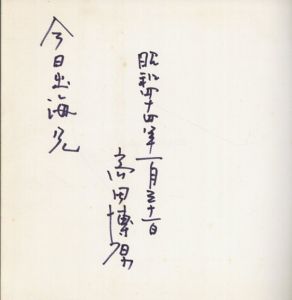 昭和四十四年一月三十一日
高田博厚
今日出海兄